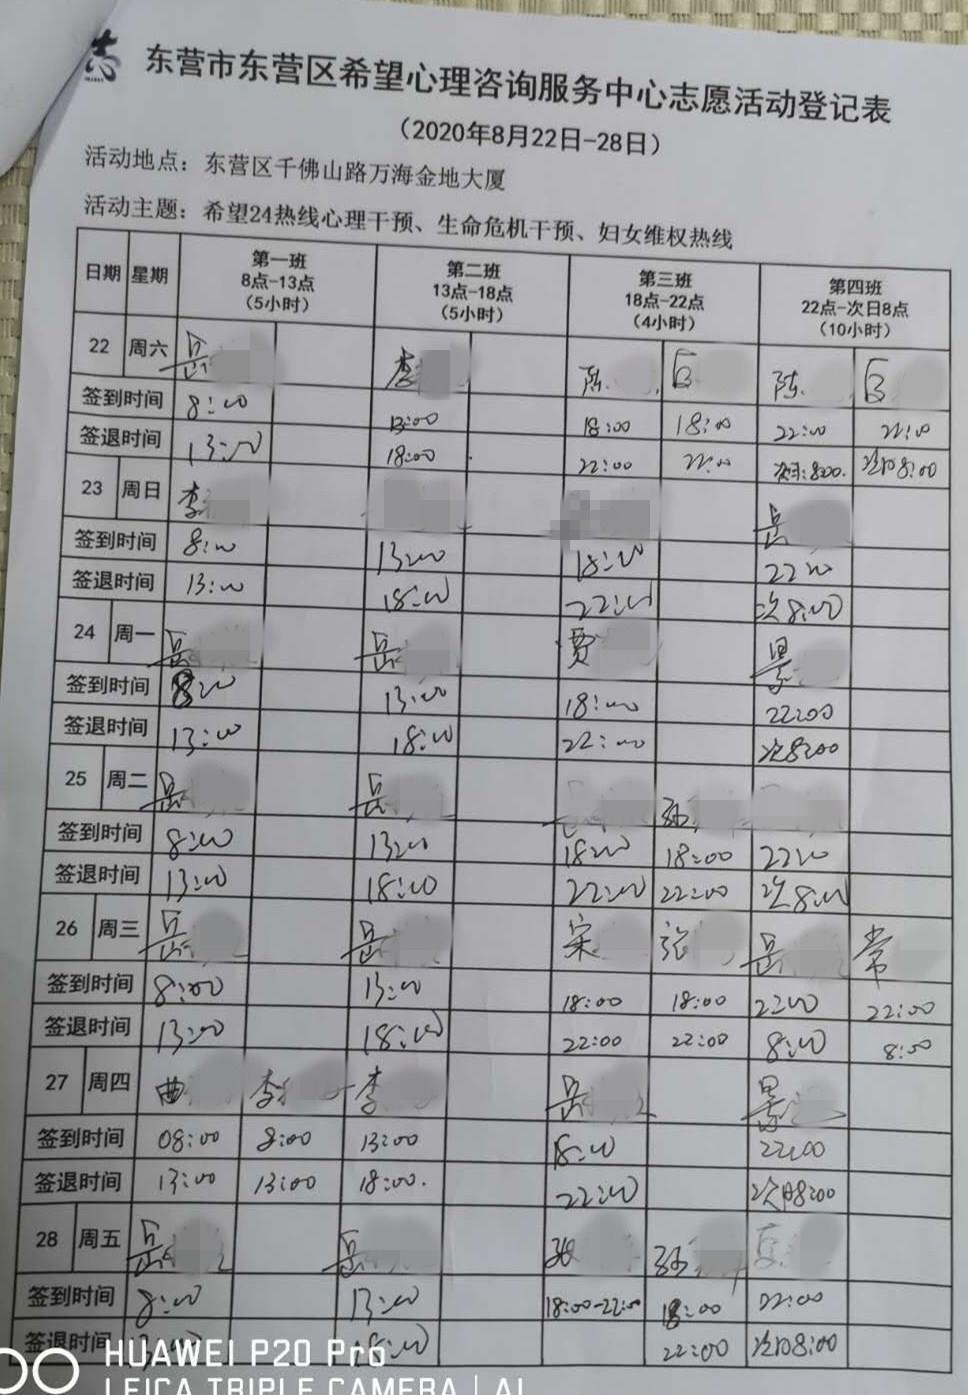 志
东营市东营区希望心理咨询服务中心志愿活动登记表
（2020年8月22日-28日）
活动地点：东营区千佛山路万海金地大厦
活动主题：希望24热线心理干预、生命危机干预、妇女维权热线
日期 星期 第一班 8点-13点 （5小时） 第二班 13点-18点 （5小时） 第三班 18点-22点 （4小时） 第四班 22点-次日8点 （10小时）
22 周六 岳 李 陈 陈
签到时间 8:00 13:00 18:00 18:00 22:00 22:00
签退时间 13:00 18:00 22:00 22:00 次日8:00
23 周日 李 岳
签到时间 8:00 13:00 18:00 22:00
签退时间 13:00 18:00 22:00 次8:00
24 周一 岳 岳 贾 景
签到时间 8:00 13:00 18:00 22:00
签退时间 13:00 18:00 22:00 次8:00
25 周二 岳 岳 孙
签到时间 8:00 13:00 18:00 18:00 22:00
签退时间 13:00 18:00 22:00 22:00 次8:00
26 周三 岳 岳 宋 张 岳 常
签到时间 8:00 13:00 18:00 18:00 22:00 22:00
签退时间 13:00 18:00 22:00 22:00 8:00 8:00
27 周四 曲 李 李 岳 景
签到时间 08:00 8:00 13:00 18:00 22:00
签退时间 13:00 13:00 18:00. 22:00 次日8:00
28 周五 岳 岳 张 孙
签到时间 8:00 13:00 18:00-22:00 18:00 22:00
签退时间 13:00 18:00 22:00 次日8:00
HUAWEI P20 Pro
LEICA TRIPLE CAMERA | AI